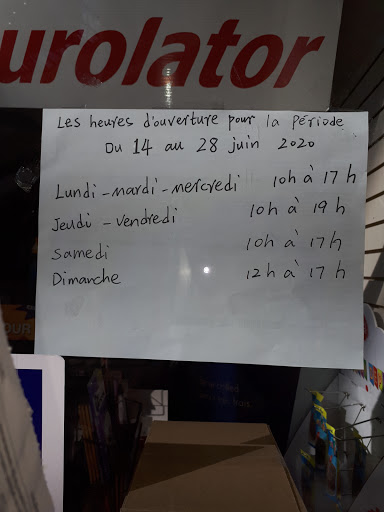 urolator
Les heures d'ouverture pour la période
Du 14 au 28 juin 2020
Lundi - mardi - mercredi 10h à 17h
Jeudi - vendredi 10h à 19h
Samedi 10h à 17h
Dimanche 12h à 17h
OUR